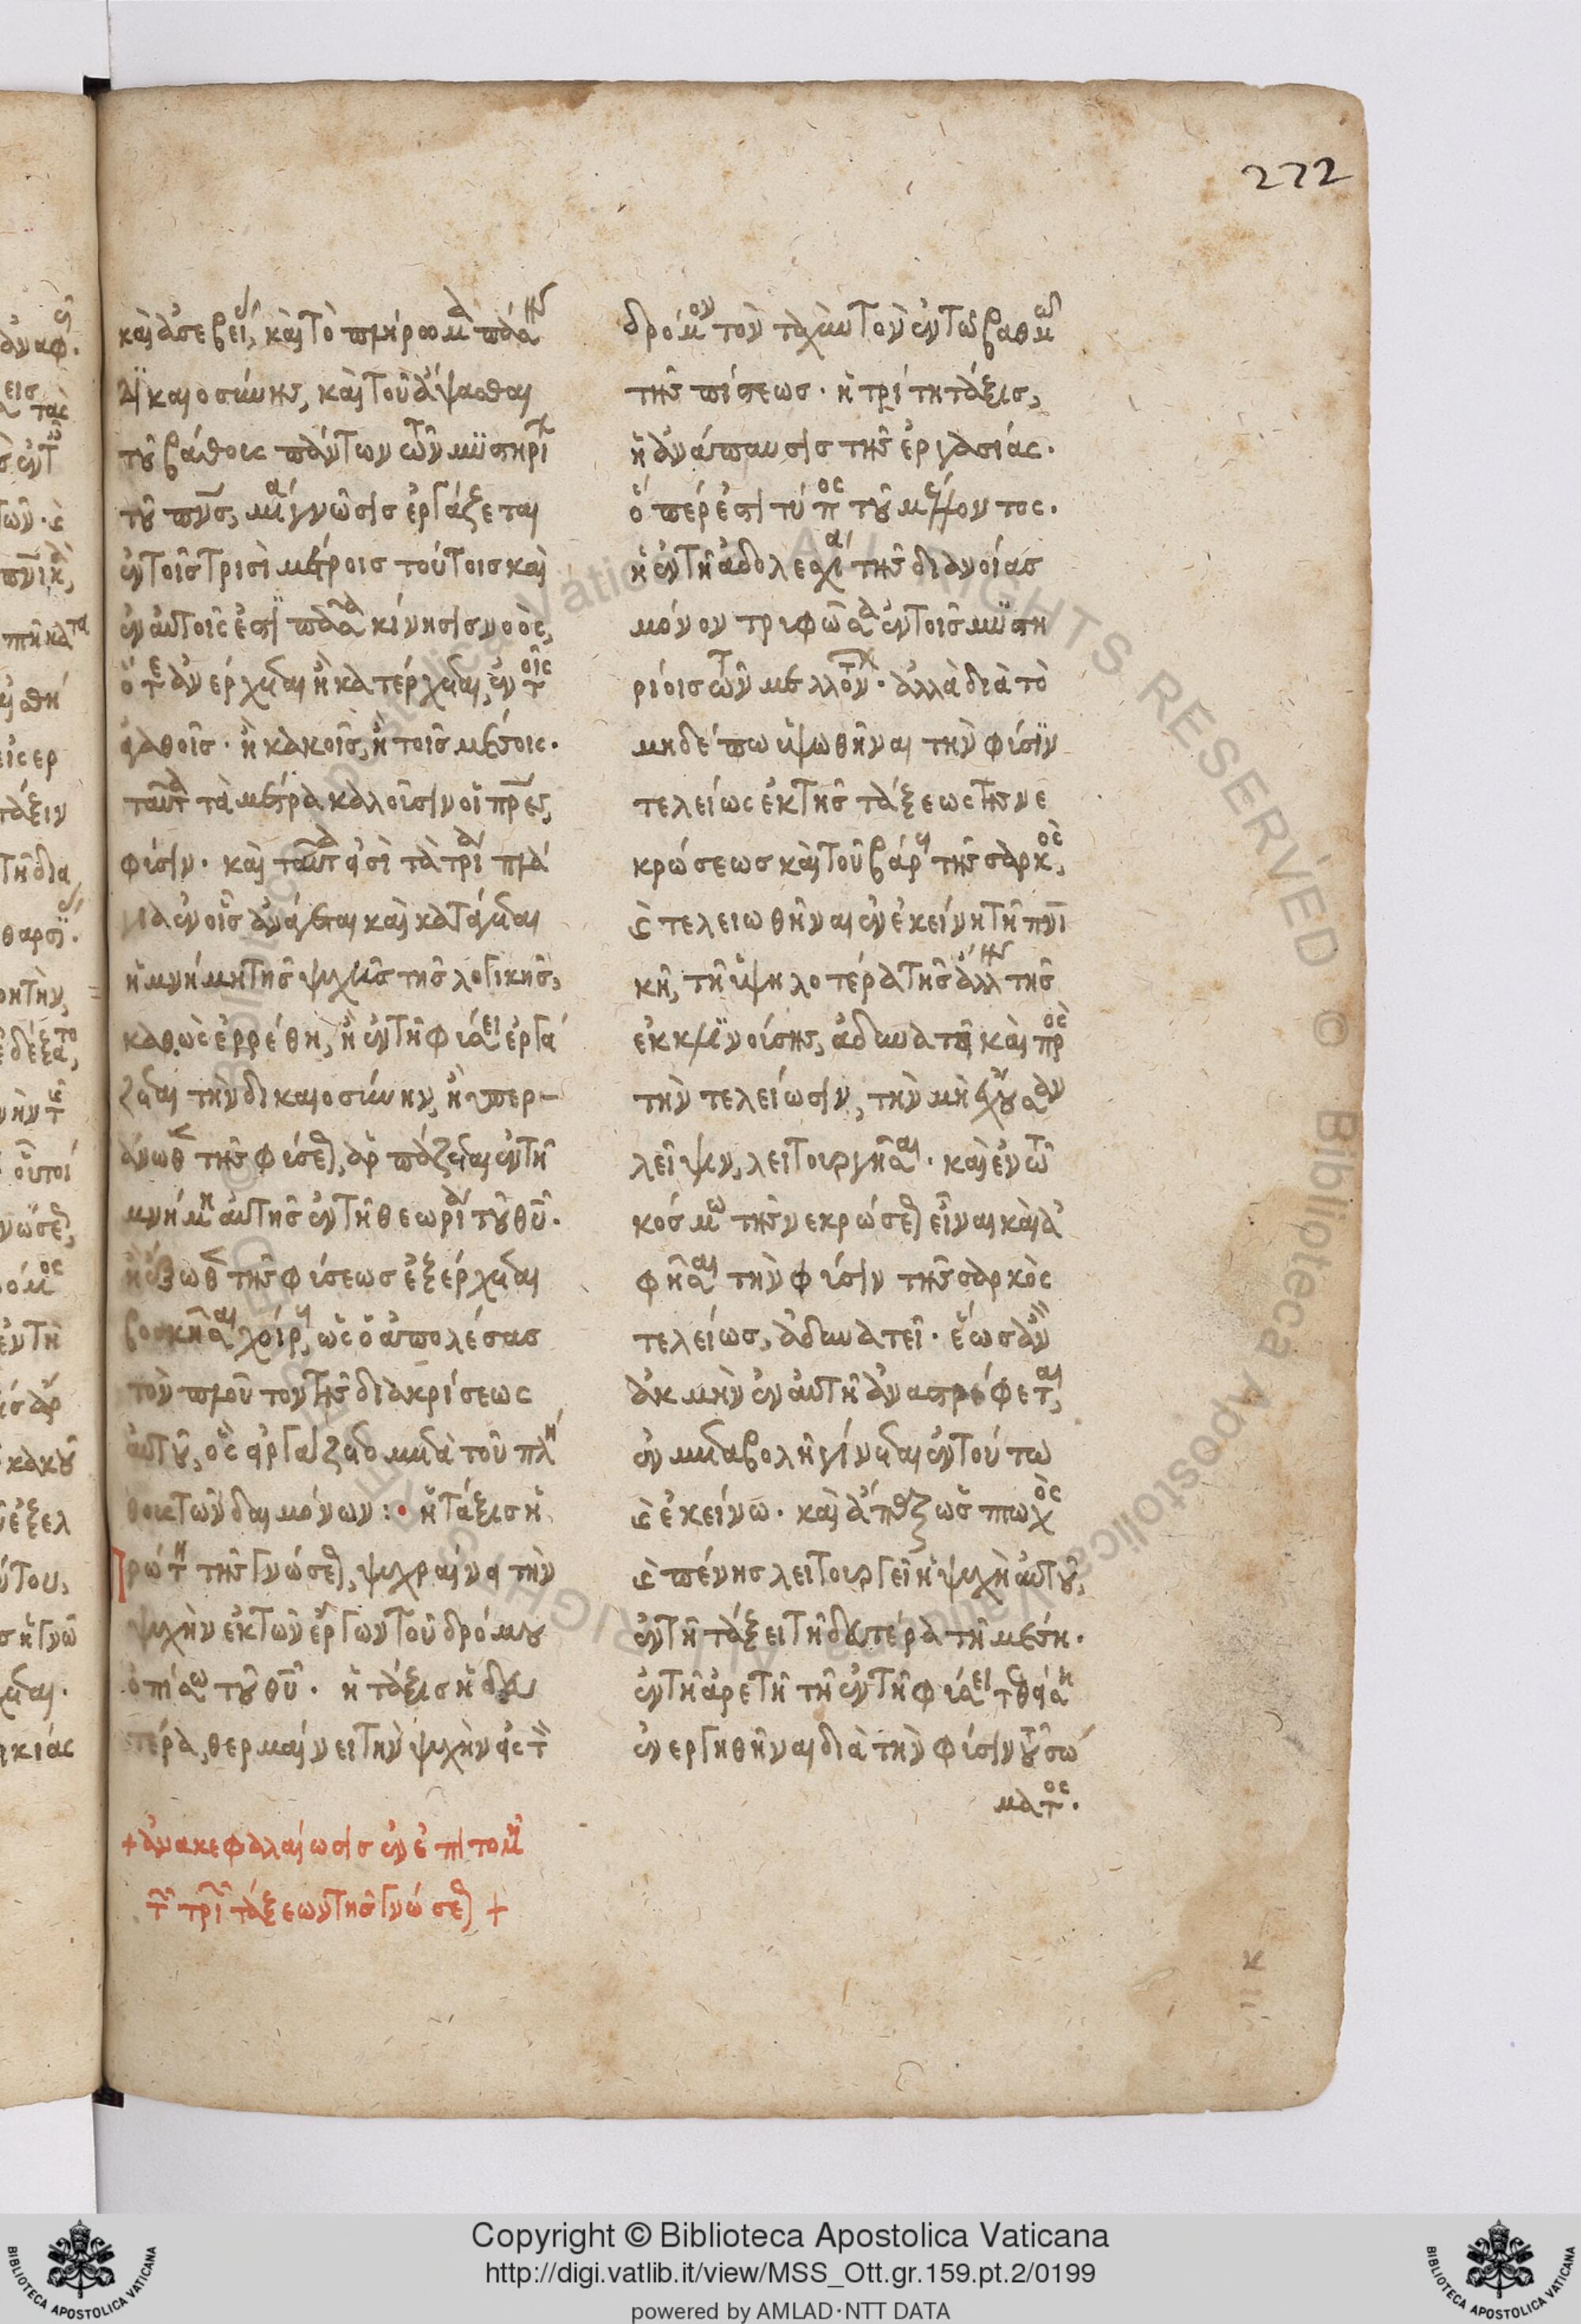 272
καὶ ἀσεβεί, καὶ τὸ πλήρωμα πάσης
δικαιοσύνης, καὶ τοῦ ἅψασθαι
τοῦ βάθους πάντων τῶν μυστηρίων
τοῦ πνς, μία γνῶσις ἐργάζεται
ἐν τοῖς τρισὶ μέτροις τούτοις καὶ
ἐν αὐτοῖς ἐστὶ πᾶσα κίνησις νοὸς,
ὅτε ἀνέρχεται ἢ κατέρχεται, ἐν τοῖς
ἀγαθοῖς· ἢ κακοῖς, ἢ τοῖς μέσοις·
ταῦτα τὰ μέτρα καλοῦσιν οἱ πρες,
φύσιν· καὶ ταῦτα εἰσὶ τὰ τρία πρά
γματα ἐν οἷς ἀνάγεται καὶ κατάγεται
ἡ μνήμη τῆς ψυχῆς τῆς λογικῆς,
καθὼς ἐρρέθη, ἢ ἐν τῇ φύσει ἐργά
ζεται τὴν δικαιοσύνην, ἢ ὑπερ-
άνωθεν τῆς φύσεως, ἁρπάζεται ἐν τῇ
μνήμη αὐτῆς ἐν τῇ θεωρία τοῦ θυ·
ἢ ἔξωθεν τῆς φύσεως ἐξέρχεται
βοσκῆσαι χοίρους, ὡς ὁ ἀπολέσας
τὸν πλοῦτον τῆς διακρίσεως
αὐτοῦ, ὃς εἰργάζετο μετὰ τοῦ πλή
θους τῶν δαιμόνων:· ἡ τάξις ἡ
πρώτη τῆς γνώσεως, ψυχραίνει τὴν
ψυχὴν ἐκ τῶν ἔργων τοῦ δρόμου
ὀπίσω τοῦ θυ· ἡ τάξις ἡ δευ
τέρα, θερμαίνει τὴν ψυχὴν εἰς τὸν
+ ἀνακεφαλαίωσις ἐν ἐπιτομῇ
τῶν τριῶν τάξεων τῆς γνώσεως +
δρόμον τὸν ταχὺν τὸν ἐν τῷ βαθμῷ
τῆς πίστεως· ἡ τρίτη τάξις,
ἡ ἀνάπαυσις τῆς ἐργασίας·
ὅπερ ἐστὶ τύπος τοῦ μέλλοντος·
ἡ ἐν τῇ ἀδολεσχία τῆς διανοίας
μόνον τρυφῶσα ἐν τοῖς μυστη
ρίοις τῶν μελλόντων· ἀλλὰ διὰ τὸ
μηδέπω ὑψωθῆναι τὴν φύσιν
τελείως ἐκ τῆς τάξεως τῆς νε
κρώσεως καὶ τοῦ βάρους τῆς σαρκὸς,
καὶ τελειωθῆναι ἐν ἐκείνη τῇ πνι
κῇ, τῇ ὑψηλοτέρα τῆς ἄλλης τῆς
ἐκκλινούσης, ἀδυνατεῖ καὶ πρὸς
τὴν τελείωσιν, τὴν μὴ ἔχουσαν
λεῖψιν, λειτουργῆσαι· καὶ ἐν τῷ
κόσμω τῆς νεκρώσεως εἶναι καὶ ἀ
φῆσαι τὴν φύσιν τῆς σαρκὸς
τελείως, ἀδυνατεῖ· ἕως ἂν
ἀκμὴν ἐν αὐτῇ ἀναστρέφεται,
ἐν μεταβολῇ γίνεται ἐν τούτω
καὶ ἐκείνω· καὶ ὡς πτωχὸς
καὶ πένης λειτουργεῖ ἡ ψυχὴ αὐτοῦ,
ἐν τῇ τάξει τῇ δευτέρα τῇ μέση·
ἐν τῇ ἀρετῇ τῇ ἐν τῇ φύσει τεθείση
ἐνεργηθῆναι διὰ τὴν φύσιν τοῦ σώ
ματος·
Copyright © Biblioteca Apostolica Vaticana
http://digi.vatlib.it/view/MSS_Ott.gr.159.pt.2/0199
powered by AMLAD·NTT DATA
BIBLIOTECA APOSTOLICA VATICANA
BIBLIOTECA APOSTOLICA VATICANA